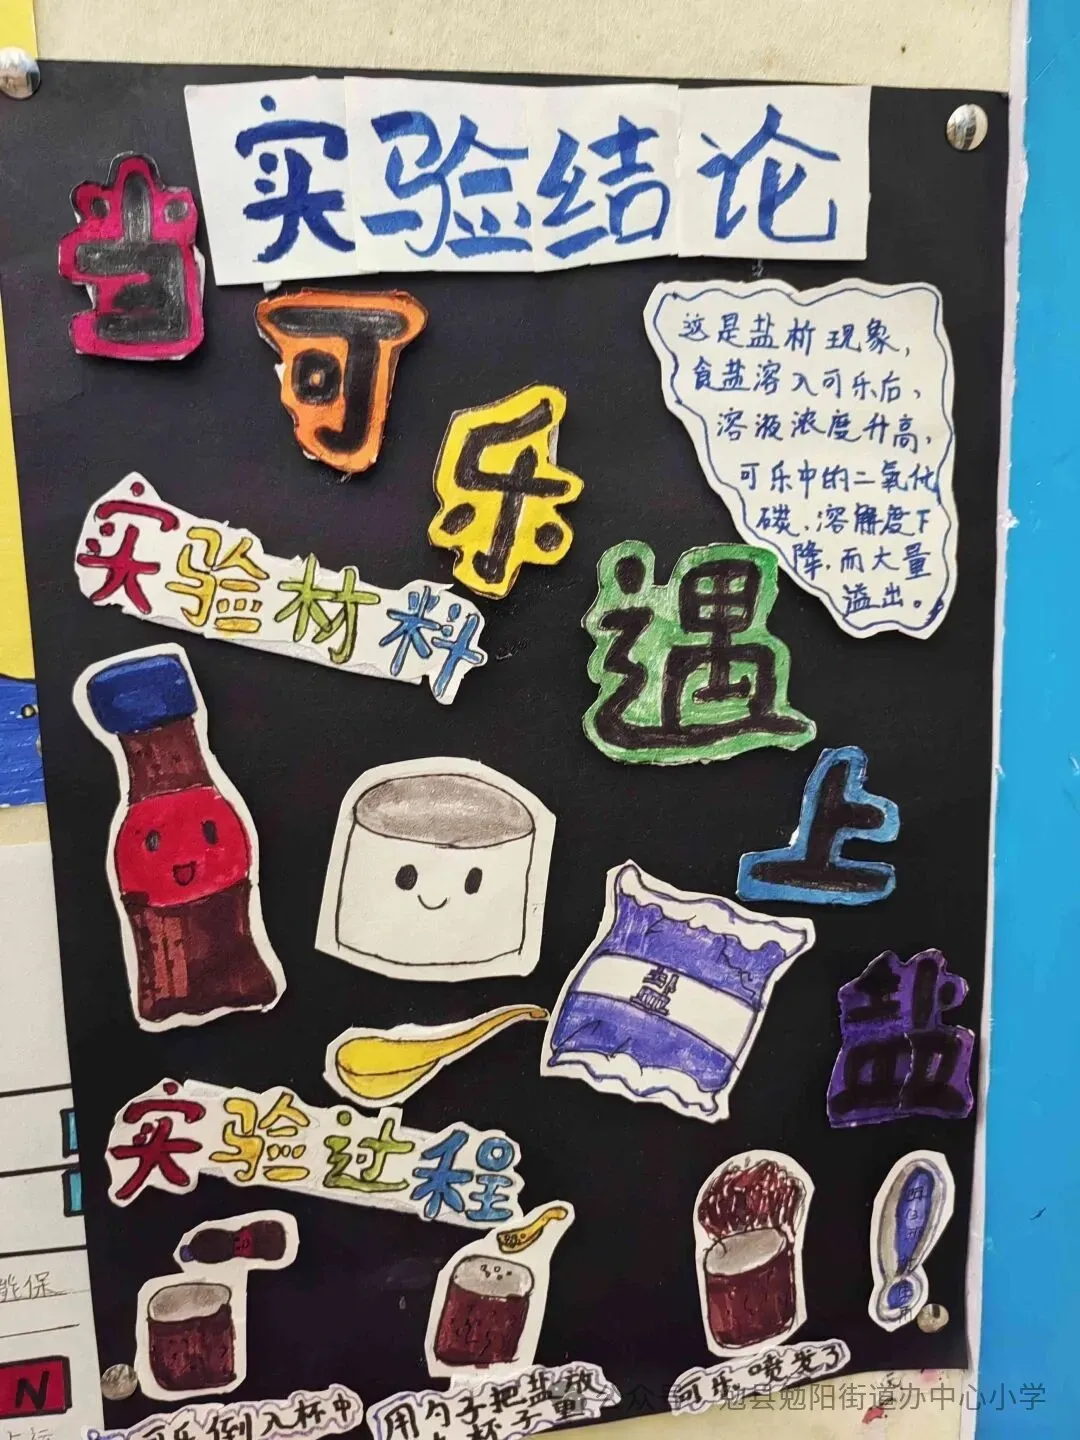 实验结论
当可乐遇上盐
这是盐析现象，
食盐溶入可乐后，
溶液浓度升高，
可乐中的二氧化
碳，溶解度下
降，而大量
溢出。
实验材料
盐
实验过程
可乐倒入杯中
用勺子把盐放
可乐喷发了
能保
N
众号 勉县勉阳街道办中心小学